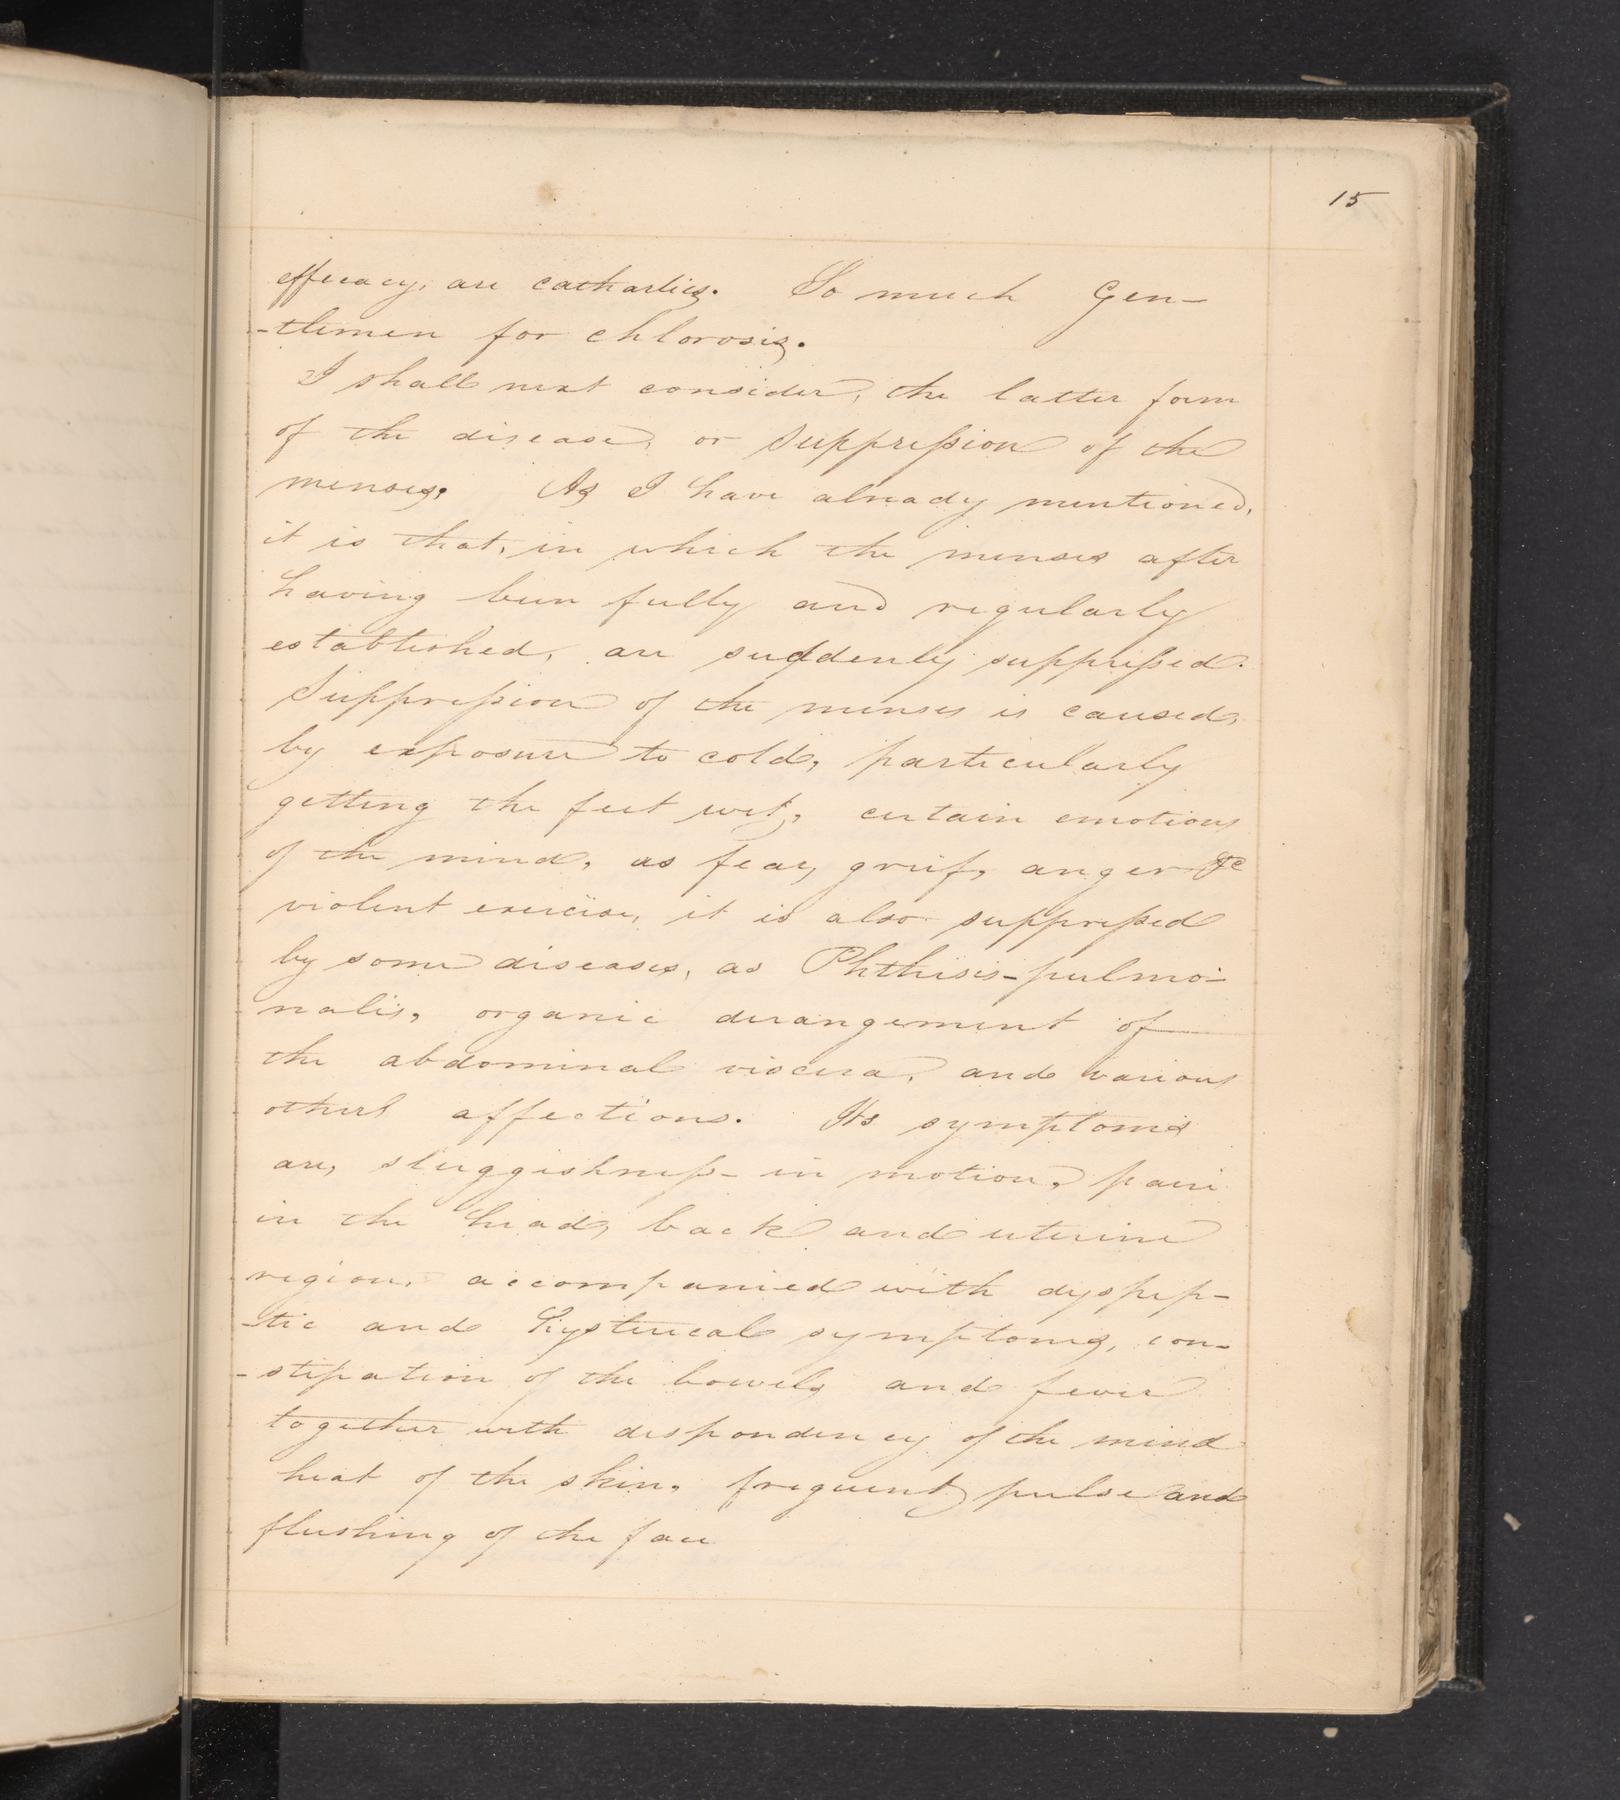 15
efficacy, are cathartics. So much Gen-
-tlemen for chlorosis.
I shall next consider, the latter form
of the disease, or Suppression of the
menses. As I have already mentioned,
it is that, in which the menses after
having been fully and regularly
established, are suddenly suppressed.
Suppression of the menses is caused,
by exposure to cold, particularly
getting the feet wet, certain emotions
of the mind, as fear, grief, anger &c
violent exercise, it is also suppressed
by some diseases, as Phthisis-pulmo-
nalis, organic derangement of
the abdominal viscera, and various
others affections. Its symptoms
are, sluggishness in motion, pain
in the head, back and uterine
region, accompanied with dyspep-
-tic and Hysterical symptoms, con-
-stipation of the bowels and fever
together with despondency of the mind
heat of the skin, frequent pulse and
flushing of the face